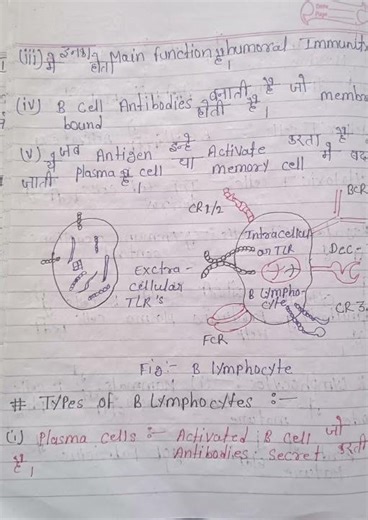 (iii) इनका Main function humoral Immunit
में होता है।
(iv) B cell Antibodies बनाती है जो membra
bound होती है।
(v) जब Antigen इन्हे Activate करता है
ये Plasma cell या memory cell में बद
जाती है।
CR1/2
BCR
Intracellular
or TLR
Dec-
Exctra-
cellular
TLR's
B Lympho-
cyte
CR3
FCR
Fig:- B lymphocyte
# Types of B Lymphocytes :-
(i) Plasma cells :- Activated B cell जो
Antibodies secret करती
है।